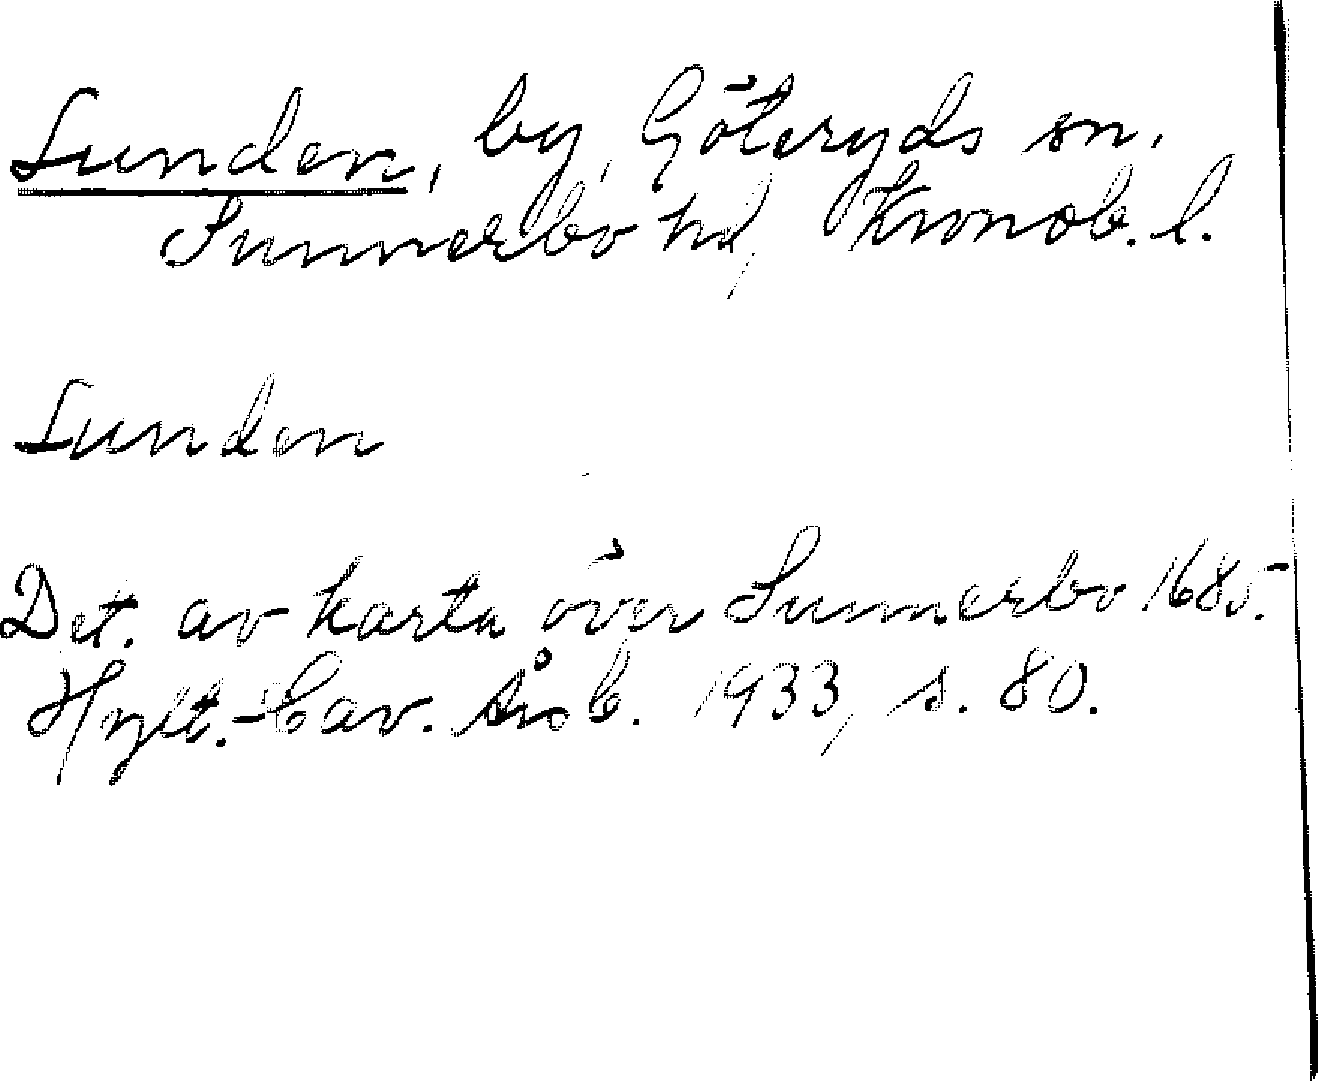 Lunden, by, Göteryds sn.
Sunnerbo hd, Kronob. l.
Lunden
Det. av karta över Sunnerbo 1685.
Hylt.-Cav. Årsb. 1933, s. 80.